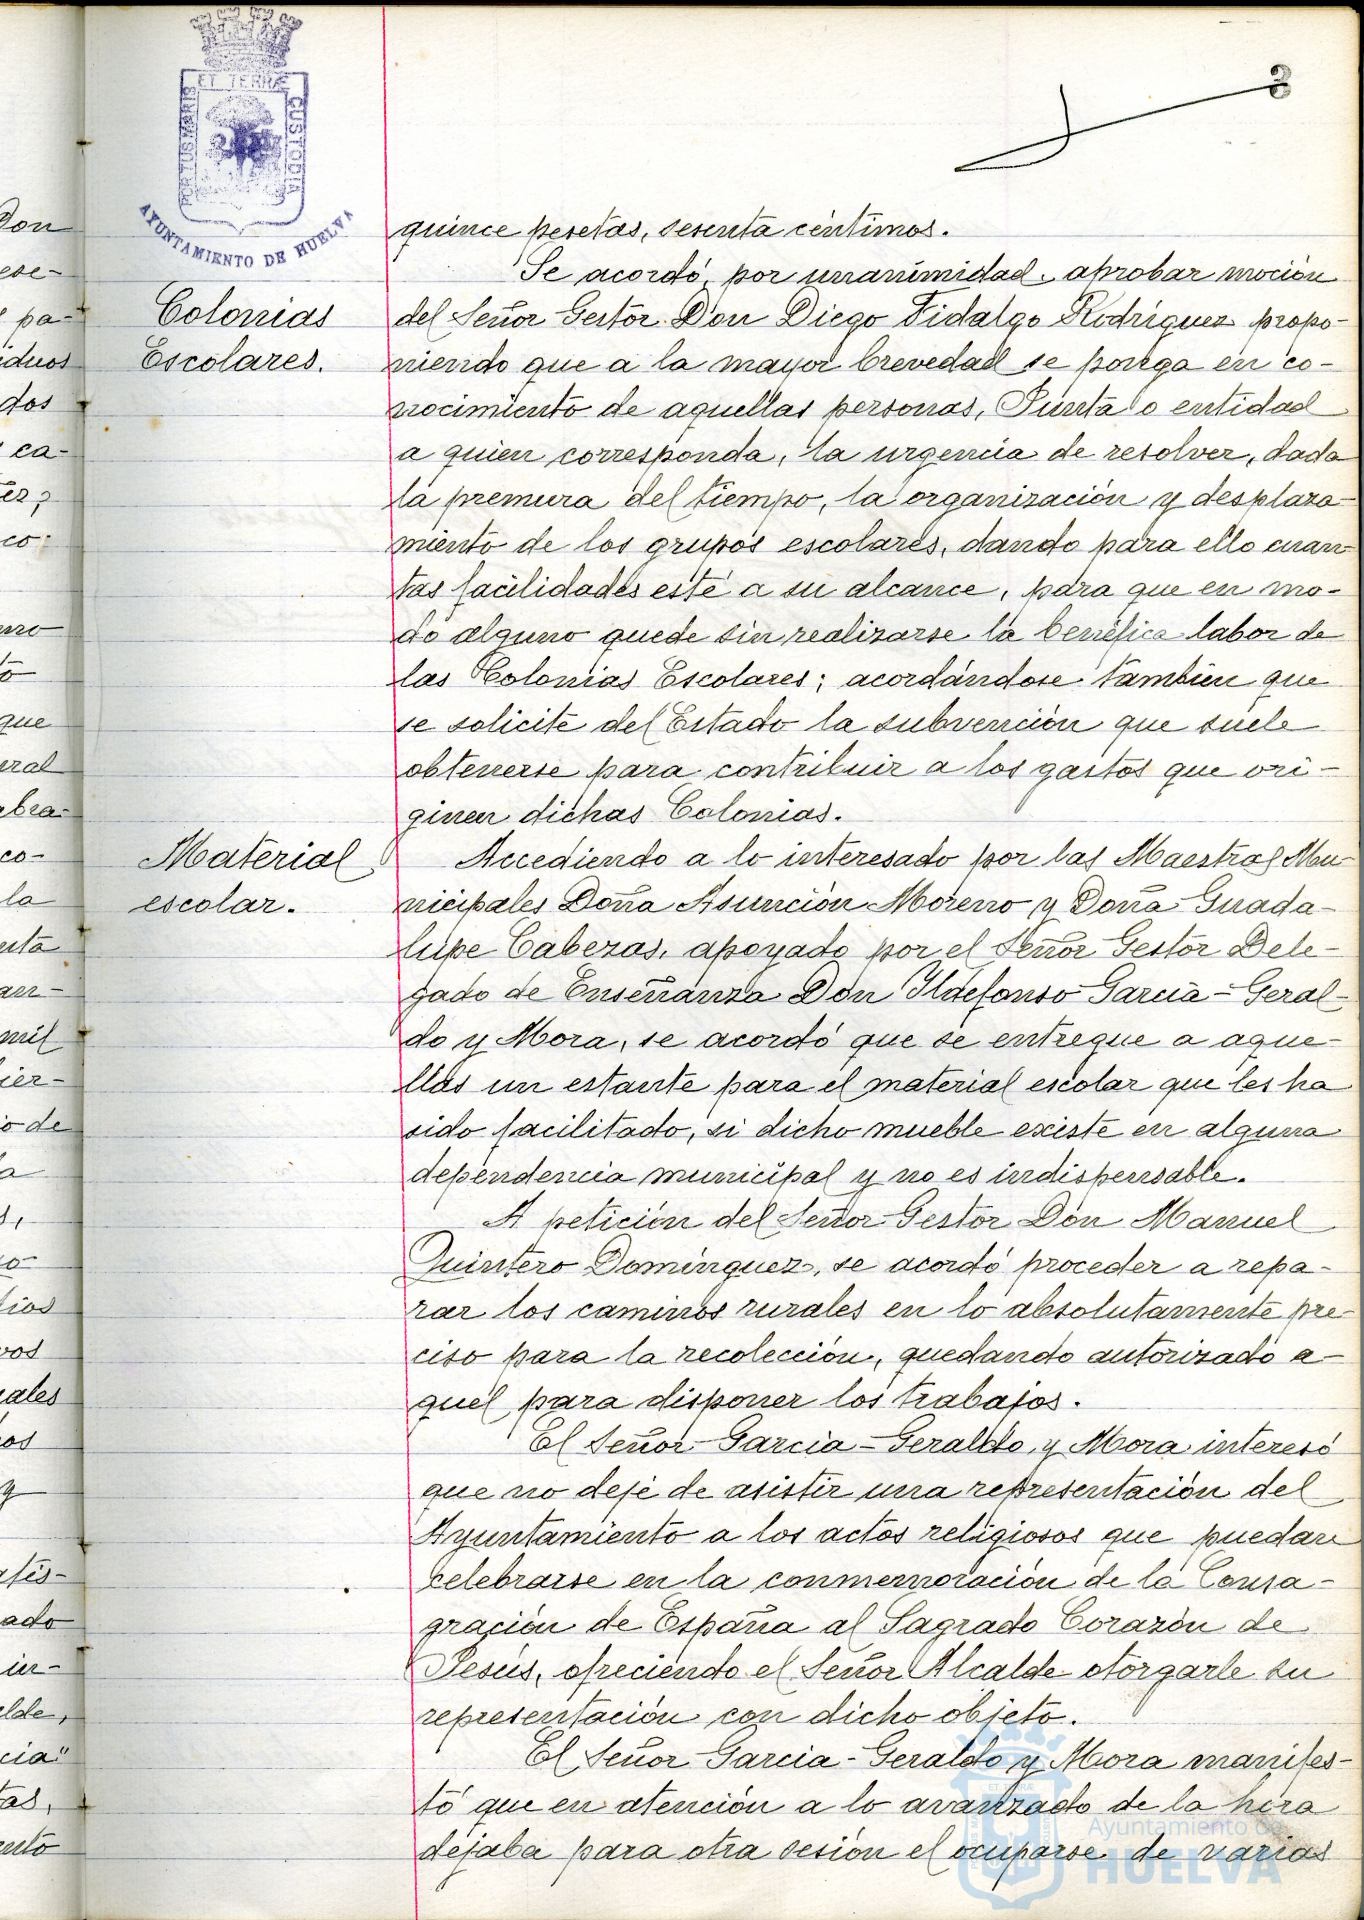 3
ET TERRÆ
PORTUS MARIS
CUSTODIA
AYUNTAMIENTO DE HUELVA
quince pesetas, sesenta céntimos.
Colonias
Escolares.
Se acordó, por unanimidad, aprobar moción
del Señor Gestor Don Diego Fidalgo Rodríguez propo-
niendo que a la mayor brevedad se ponga en co-
nocimiento de aquellas personas, Junta o entidad
a quien corresponda, la urgencia de resolver, dada
la premura del tiempo, la organización y desplaza-
miento de los grupos escolares, dando para ello cuan-
tas facilidades esté a su alcance, para que en mo-
do alguno quede sin realizarse la benéfica labor de
las Colonias Escolares; acordándose también que
se solicite del Estado la subvención que suele
obtenerse para contribuir a los gastos que ori-
ginen dichas Colonias.
Material
escolar.
Accediendo a lo interesado por las Maestras Mu-
nicipales Doña Asunción Moreno y Doña Guada-
lupe Cabezas, apoyado por el Señor Gestor Dele-
gado de Enseñanza Don Ildefonso García-Geral-
do y Mora, se acordó que se entregue a aque-
llas un estante para el material escolar que les ha
sido facilitado, si dicho mueble existe en alguna
dependencia municipal y no es indispensable.
A petición del Señor Gestor Don Manuel
Quintero Domínguez, se acordó proceder a repa-
rar los caminos rurales en lo absolutamente pre-
ciso para la recolección, quedando autorizado a-
quel para disponer los trabajos.
El Señor García-Geraldo y Mora interesó
que no deje de asistir una representación del
Ayuntamiento a los actos religiosos que puedan
celebrarse en la conmemoración de la Consa-
gración de España al Sagrado Corazón de
Jesús, ofreciendo el Señor Alcalde otorgarle su
representación con dicho objeto.
El Señor García-Geraldo y Mora manifes-
tó que en atención a lo avanzado de la hora
dejaba para otra sesión el ocuparse de varias
Ayuntamiento de
HUELVA